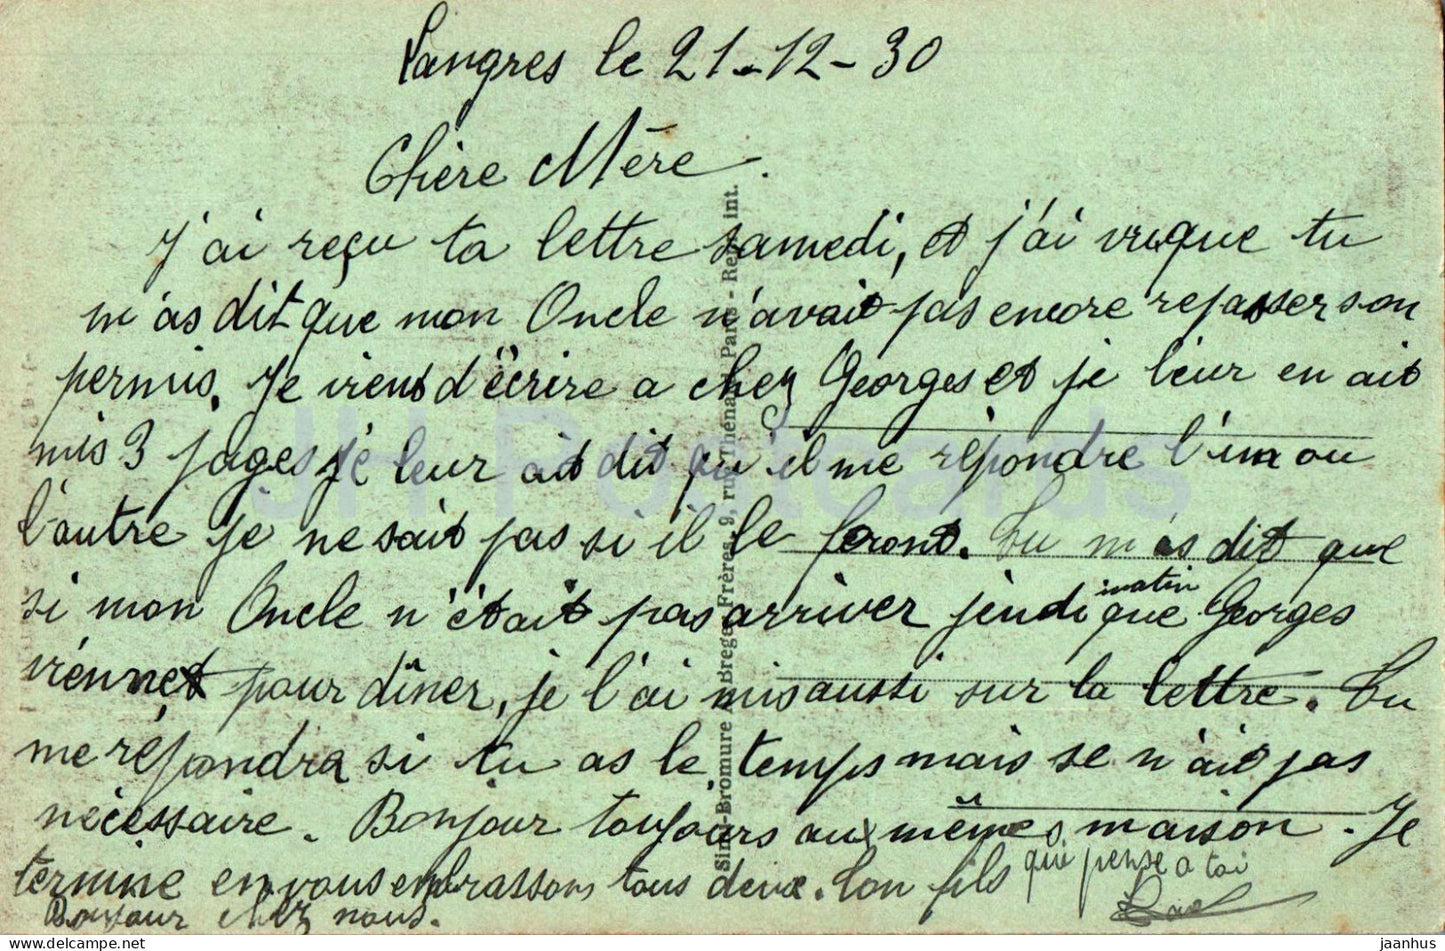 Langres le 21-12-30
Chère Mère.
J'ai reçu ta lettre samedi, et j'ai vu que tu
m'as dit que mon Oncle n'avait pas encore repasser son
permis. Je vient d'écrire a chez Georges et je leur en ait
mis 3 pages je leur ait dit qu'il me répondre l'un ou
l'autre je ne sait pas si il le feront. Tu m'as dit que
si mon Oncle n'était pas arriver jeudi matin que Georges
viennet pour dîner, je l'ai mis aussi sur la lettre. Tu
me répondra si tu as le temps mais se n'ait pas
nécessaire. Bonjour toujours aux mêmes maison. Je
termine en vous embrassons tous deux. Ton fils qui pense a toi
Bonjour chez nous.
Simi-Bromure A. Breger Frères, 9, rue Thénard Paris - Rep. int.
JH Postcards
jaanhus